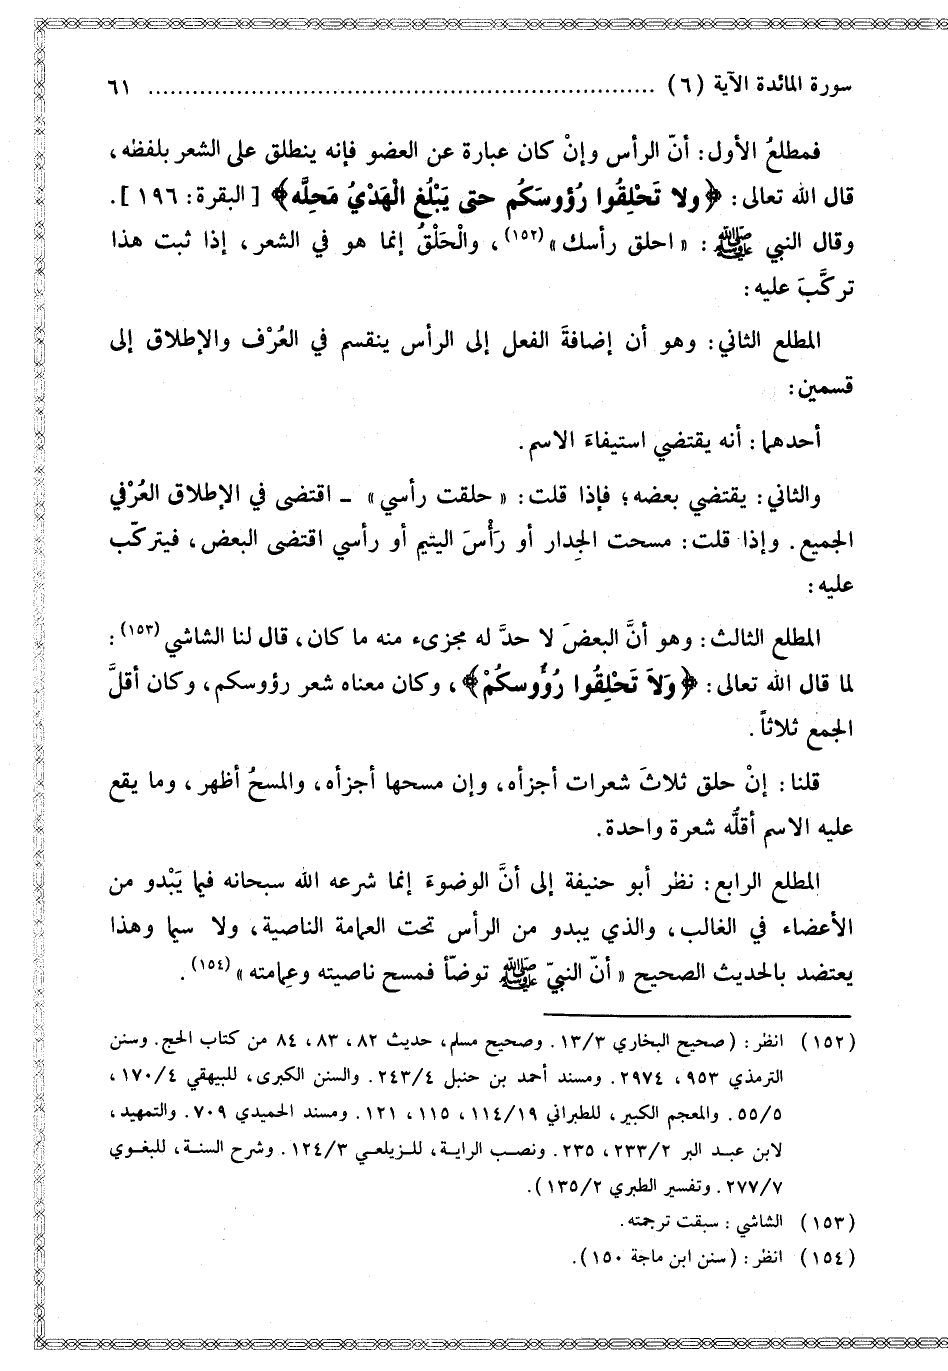 سورة المائدة الآية (٦) ........................................................................ ٦١
فمطلعُ الأول: أنّ الرأس وإنْ كان عبارة عن العضو فإنه ينطلق على الشعر بلفظه،
قال الله تعالى: ﴿ولا تَحْلِقُوا رُؤوسَكُم حتى يَبْلُغ الْهَدْيُ مَحِلَّه﴾ [البقرة: ١٩٦].
وقال النبي ﷺ: «احلق رأسك»(١٥٢)، والْحَلْقُ إنما هو في الشعر، إذا ثبت هذا
تركَّبَ عليه:
المطلع الثاني: وهو أن إضافةَ الفعل إلى الرأس ينقسم في العُرْف والإطلاق إلى
قسمين:
أحدهما: أنه يقتضي استيفاءَ الاسم.
والثاني: يقتضي بعضه؛ فإذا قلت: «حلقت رأسي» ــ اقتضى في الإطلاق العُرْفي
الجميع. وإذا قلت: مسحت الجِدار أو رَأْسَ اليتيم أو رأسي اقتضى البعض، فيتركّب
عليه:
المطلع الثالث: وهو أنَّ البعضَ لا حدَّ له مجزىء منه ما كان، قال لنا الشاشي(١٥٣):
لما قال الله تعالى: ﴿وَلاَ تَحْلِقُوا رُؤُوسكُمْ﴾، وكان معناه شعر رؤوسكم، وكان أقلَّ
الجمع ثلاثاً.
قلنا: إنْ حلق ثلاثَ شعرات أجزأه، وإن مسحها أجزأه، والمسحُ أظهر، وما يقع
عليه الاسم أقلُّه شعرة واحدة.
المطلع الرابع: نظر أبو حنيفة إلى أنَّ الوضوءَ إنما شرعه الله سبحانه فيما يَبْدو من
الأعضاء في الغالب، والذي يبدو من الرأس تحت العمامة الناصية، ولا سيما وهذا
يعتضد بالحديث الصحيح «أنّ النبيّ ﷺ توضّأ فمسح ناصيته وعِمامته»(١٥٤).
(١٥٢) انظر: (صحيح البخاري ١٣/٣. وصحيح مسلم، حديث ٨٢، ٨٣، ٨٤ من كتاب الحج. وسنن
الترمذي ٩٥٣، ٢٩٧٤. ومسند أحمد بن حنبل ٢٤٣/٤. والسنن الكبرى، للبيهقي ١٧٠/٤،
٥٥/٥. والمعجم الكبير، للطبراني ١١٤/١٩، ١١٥، ١٢١. ومسند الحميدي ٧٠٩. والتمهيد،
لابن عبد البر ٢٣٣/٢، ٢٣٥. ونصب الراية، للزيلعي ١٢٤/٣. وشرح السنة، للبغوي
٢٧٧/٧. وتفسير الطبري ١٣٥/٢).
(١٥٣) الشاشي: سبقت ترجمته.
(١٥٤) انظر: (سنن ابن ماجة ١٥٠).